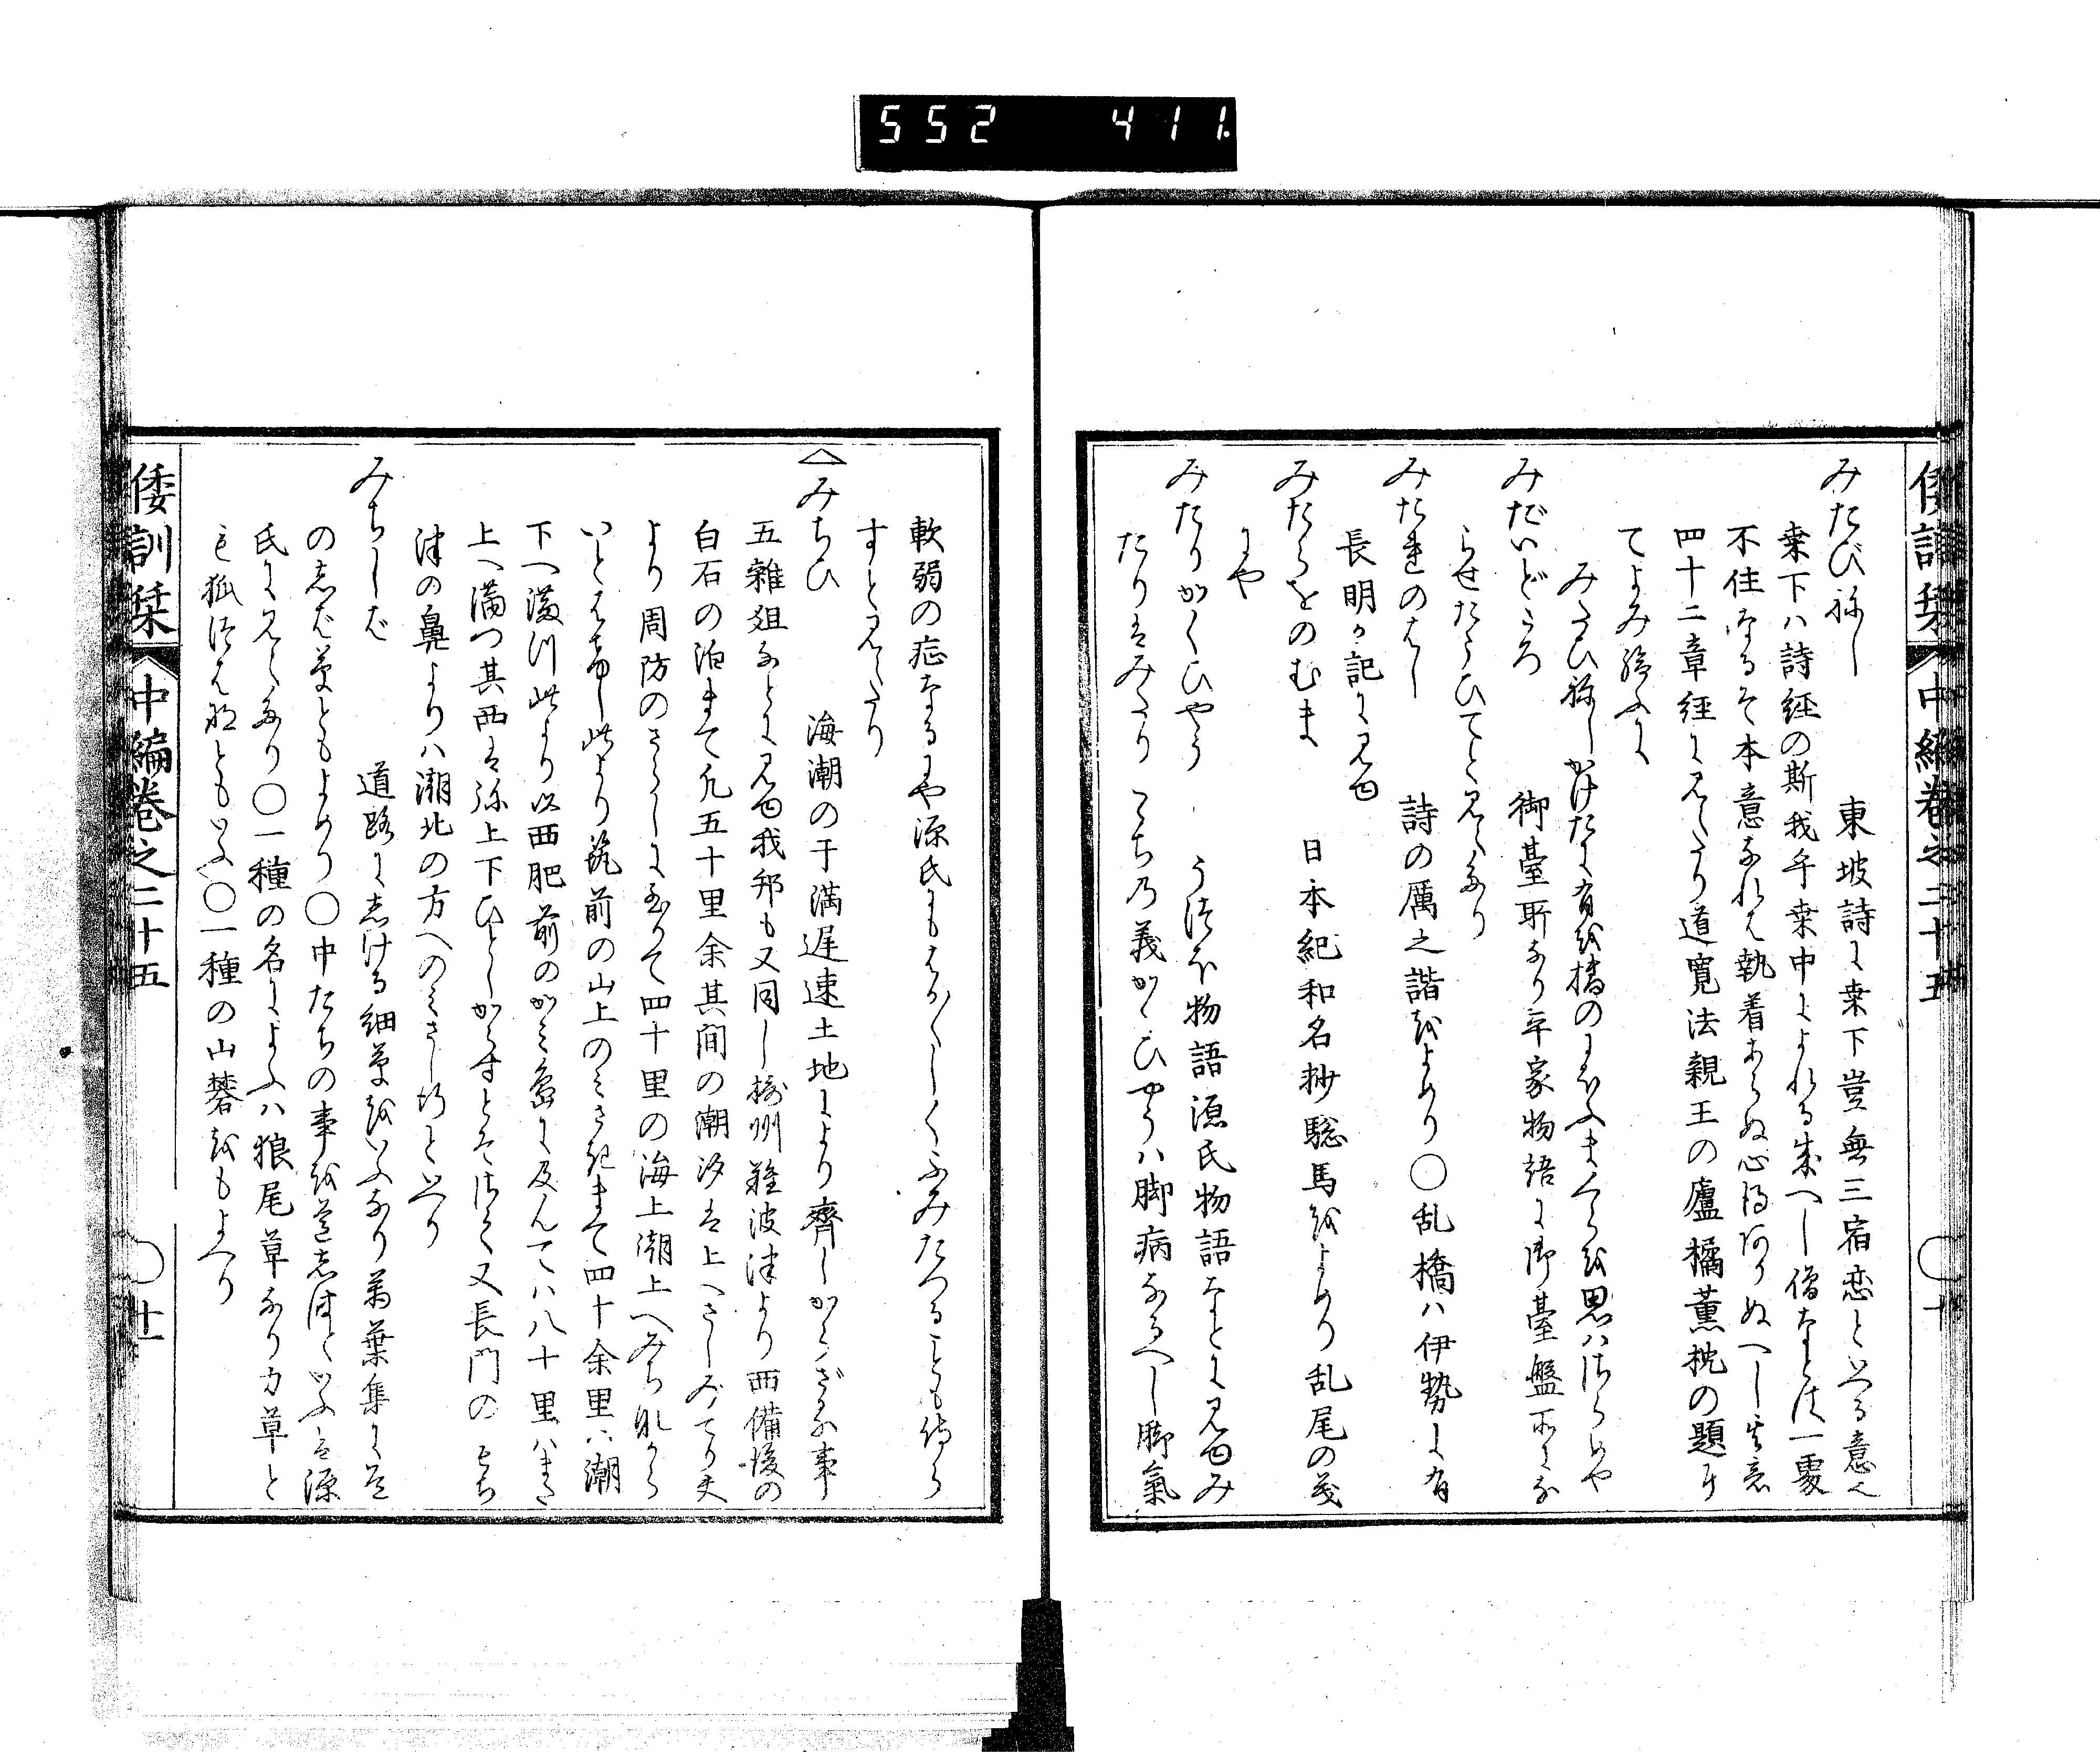 552 411.
倭訓栞 中編巻之二十五 ○ 十
みたび祢し 東坡詩に桒下豈無三宿恋といへる意也
桒下ハ詩経の斯我乎桒中によれる成へし僧なとは一處
不住なるそ本意なれは執着あらぬ心得
四十二章経に見えたり道寛法親王の盧橘薫枕の題に
てよみ給ふに
みたひ祢しかけたに有を橘のにほふまくらを思ハさらめや
みだいどころ 御臺所なり平家物語に御臺盤所にな
らせたまひてと見えたり
みたれのはし 詩の厲之諧をよめり○乱橋ハ伊勢に有
長明か記に見ゆ
みたらをのむま 日本紀和名抄騘馬をよめり乱尾の義
にや
みたりかくひやう うつほ物語源氏物語なとに見ゆみ
たりはみたりこち乃義かくひやうハ脚病なるへし脚氣
軟弱の症なるにや源氏にもはかくしくふみたつることも侍ら
すと見えたり
△みちひ 海潮の干満遅速土地により齊しからざる事
五雜爼なとに見ゆ我邦も又同し摂州難波津より西備後の
白石の泊まて凢五十里余其間の潮汐は上へさしみてり夫
より周防のさらしに至りて四十里の海上潮上へみち
いとはやし此より筑前の山上のみさきまて四十余里ハ潮
下へ満つ此より以西肥前のかみ嶌に及んてハ八十里ハまた
上へ満つ其西は弥上下ひとしからすとそ又長門のもち
津の鼻よりハ潮北の方へのみさし行といへり
みちしば 道路にしける細草をいふなり萬葉集に
のしば草ともよめり○中たちの事を道しばといふも源
氏に見えたり○一種の名によふハ狼尾草なり力草と
も狐ともいふ○一種の山礬をもよへり
倭訓栞 中編巻之二十五 ○ 十一